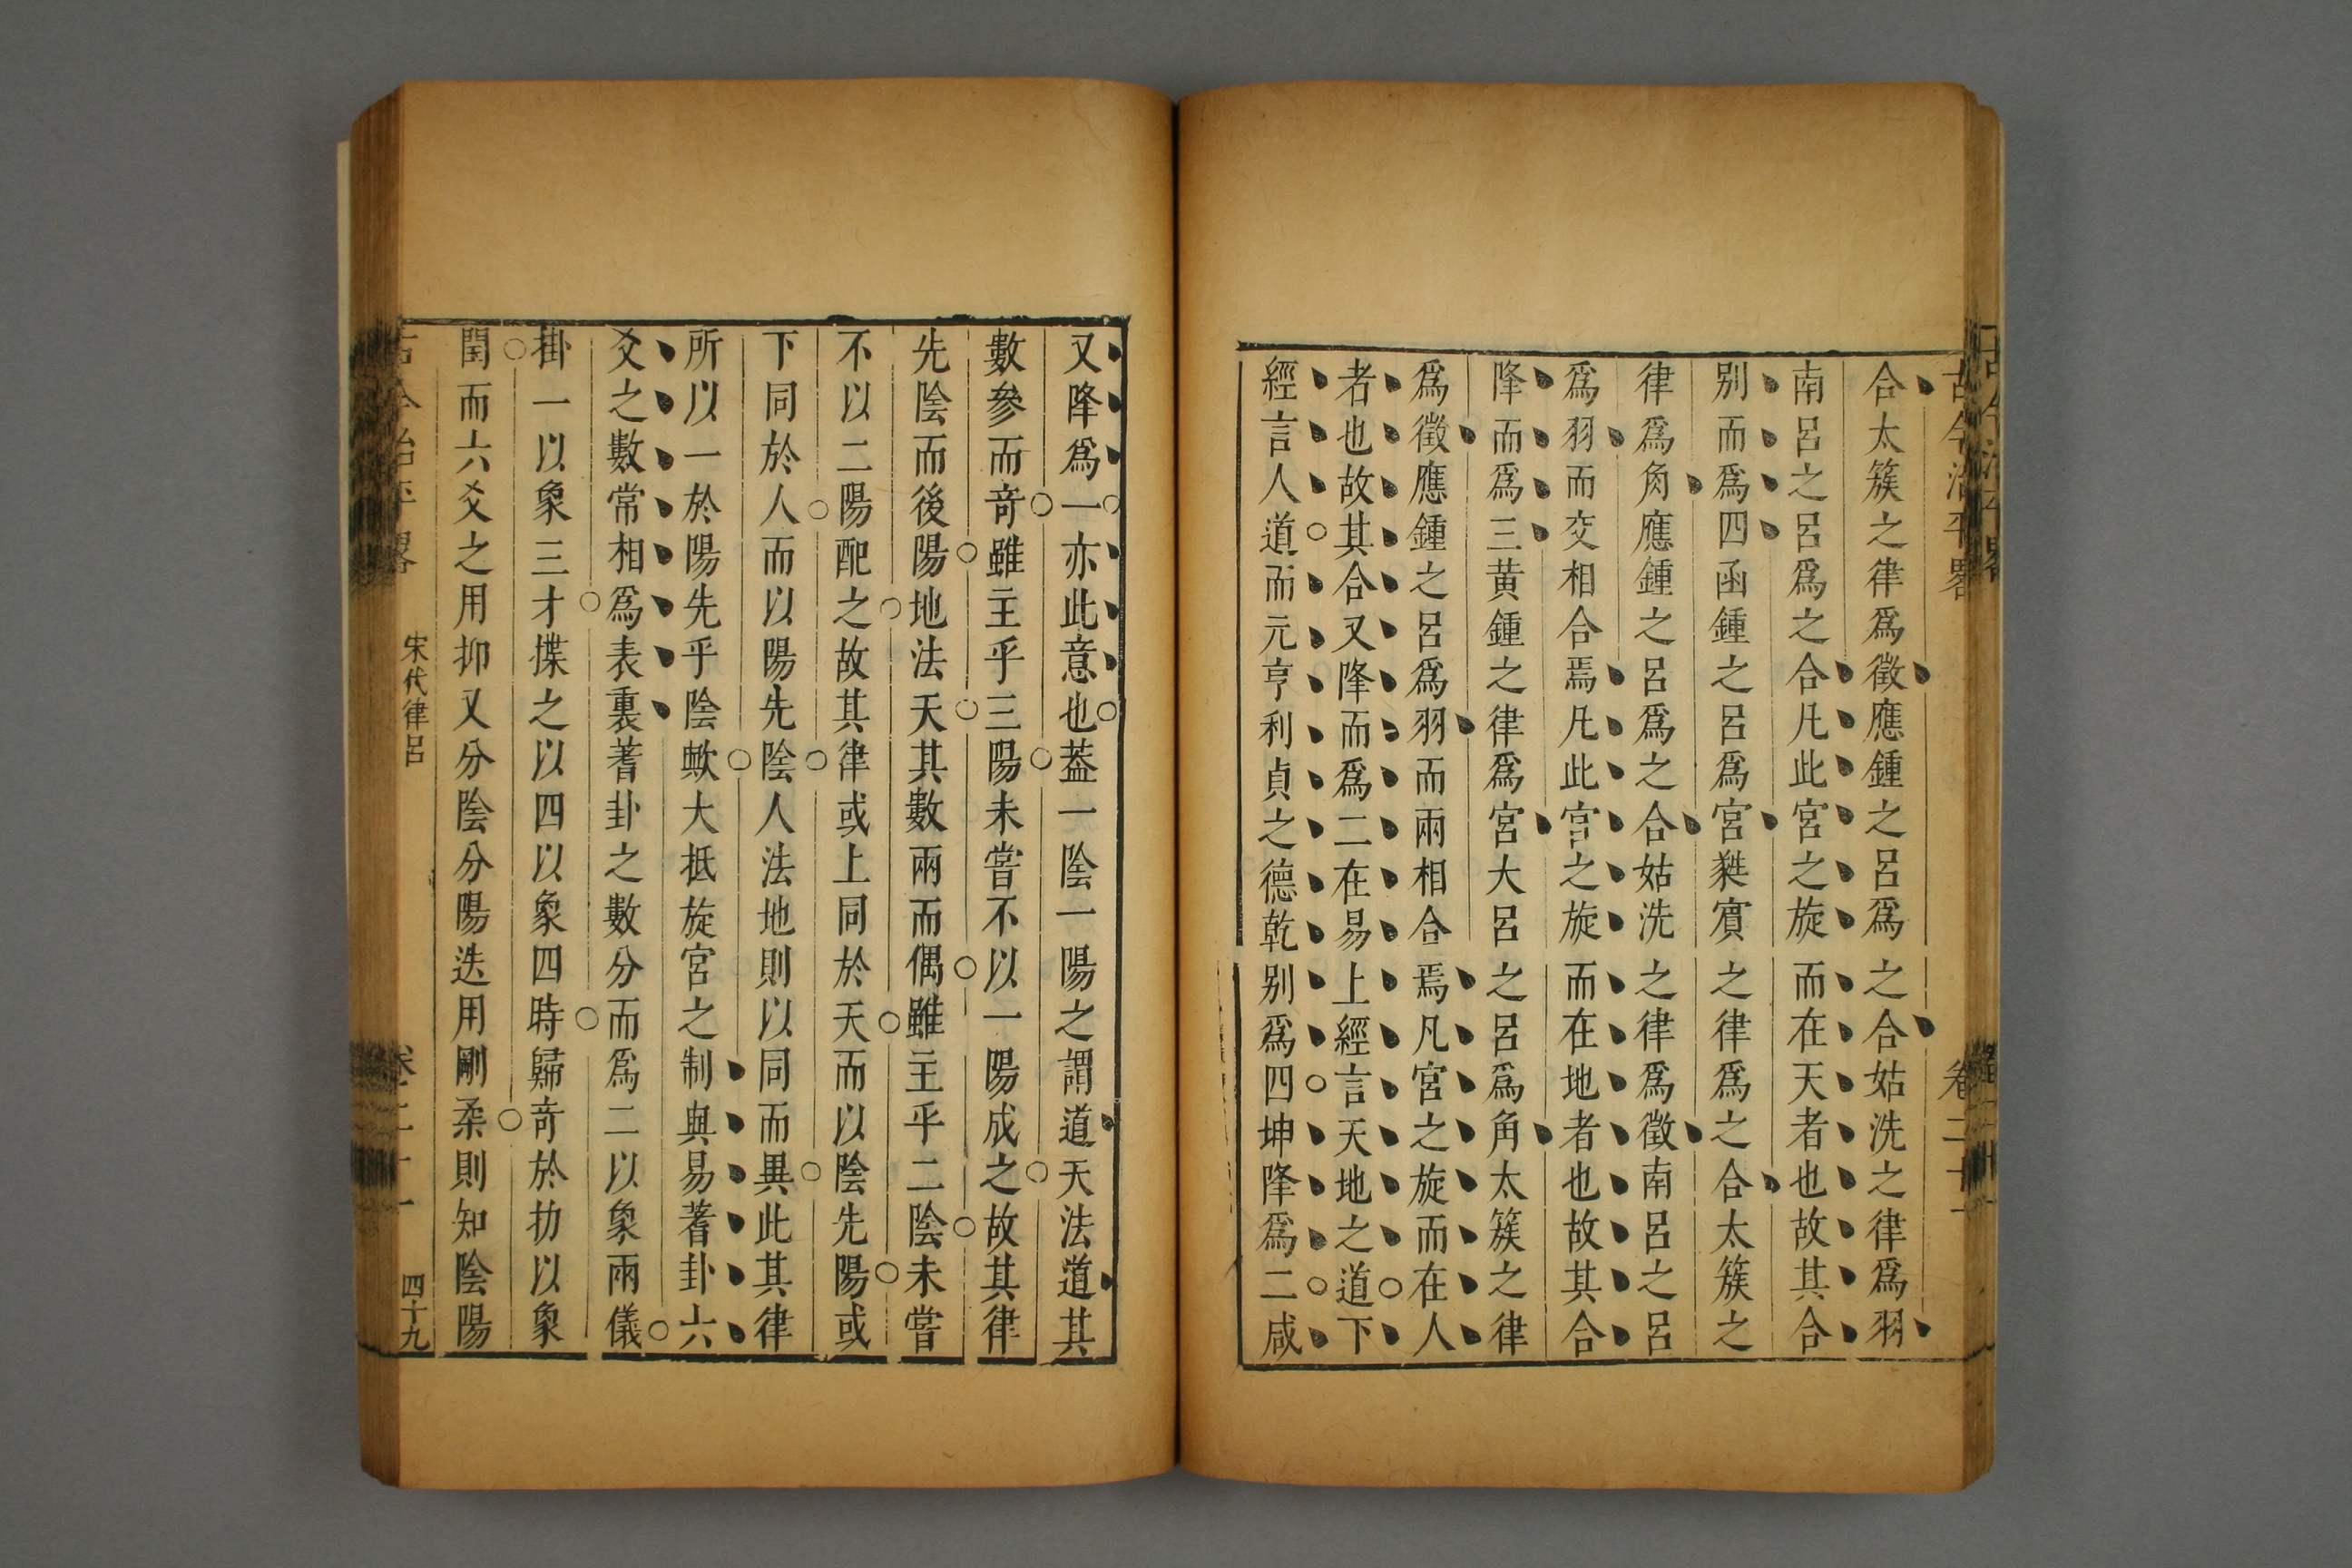 古今治平畧 卷二十一
合太簇之律爲徵應鍾之呂爲之合姑洗之律爲羽
南呂之呂爲之合凡此宮之旋而在天者也故其合
別而爲四函鍾之呂爲宮蕤賔之律爲之合太簇之
律爲角應鍾之呂爲之合姑洗之律爲徵南呂之呂
爲羽而交相合焉凡此宮之旋而在地者也故其合
降而爲三黃鍾之律爲宮大呂之呂爲角太簇之律
爲徵應鍾之呂爲羽而兩相合焉凡宮之旋而在人
者也故其合又降而爲二在易上經言天地之道下
經言人道而元亨利貞之德乾別爲四坤降爲二咸
又降爲一亦此意也葢一陰一陽之謂道天法道其
數參而奇雖主乎三陽未嘗不以一陽成之故其律
先陰而後陽地法天其數兩而偶雖主乎二陰未嘗
不以二陽配之故其律或上同於天而以陰先陽或
下同於人而以陽先陰人法地則以同而異此其律
所以一於陽先乎陰歟大抵旋宮之制與易蓍卦六
爻之數常相爲表裏蓍卦之數分而爲二以象兩儀
掛一以象三才揲之以四以象四時歸奇於扐以象
閏而六爻之用抑又分陰分陽迭用剛柔則知陰陽
古今治平畧 宋代律呂 卷二十一 四十九